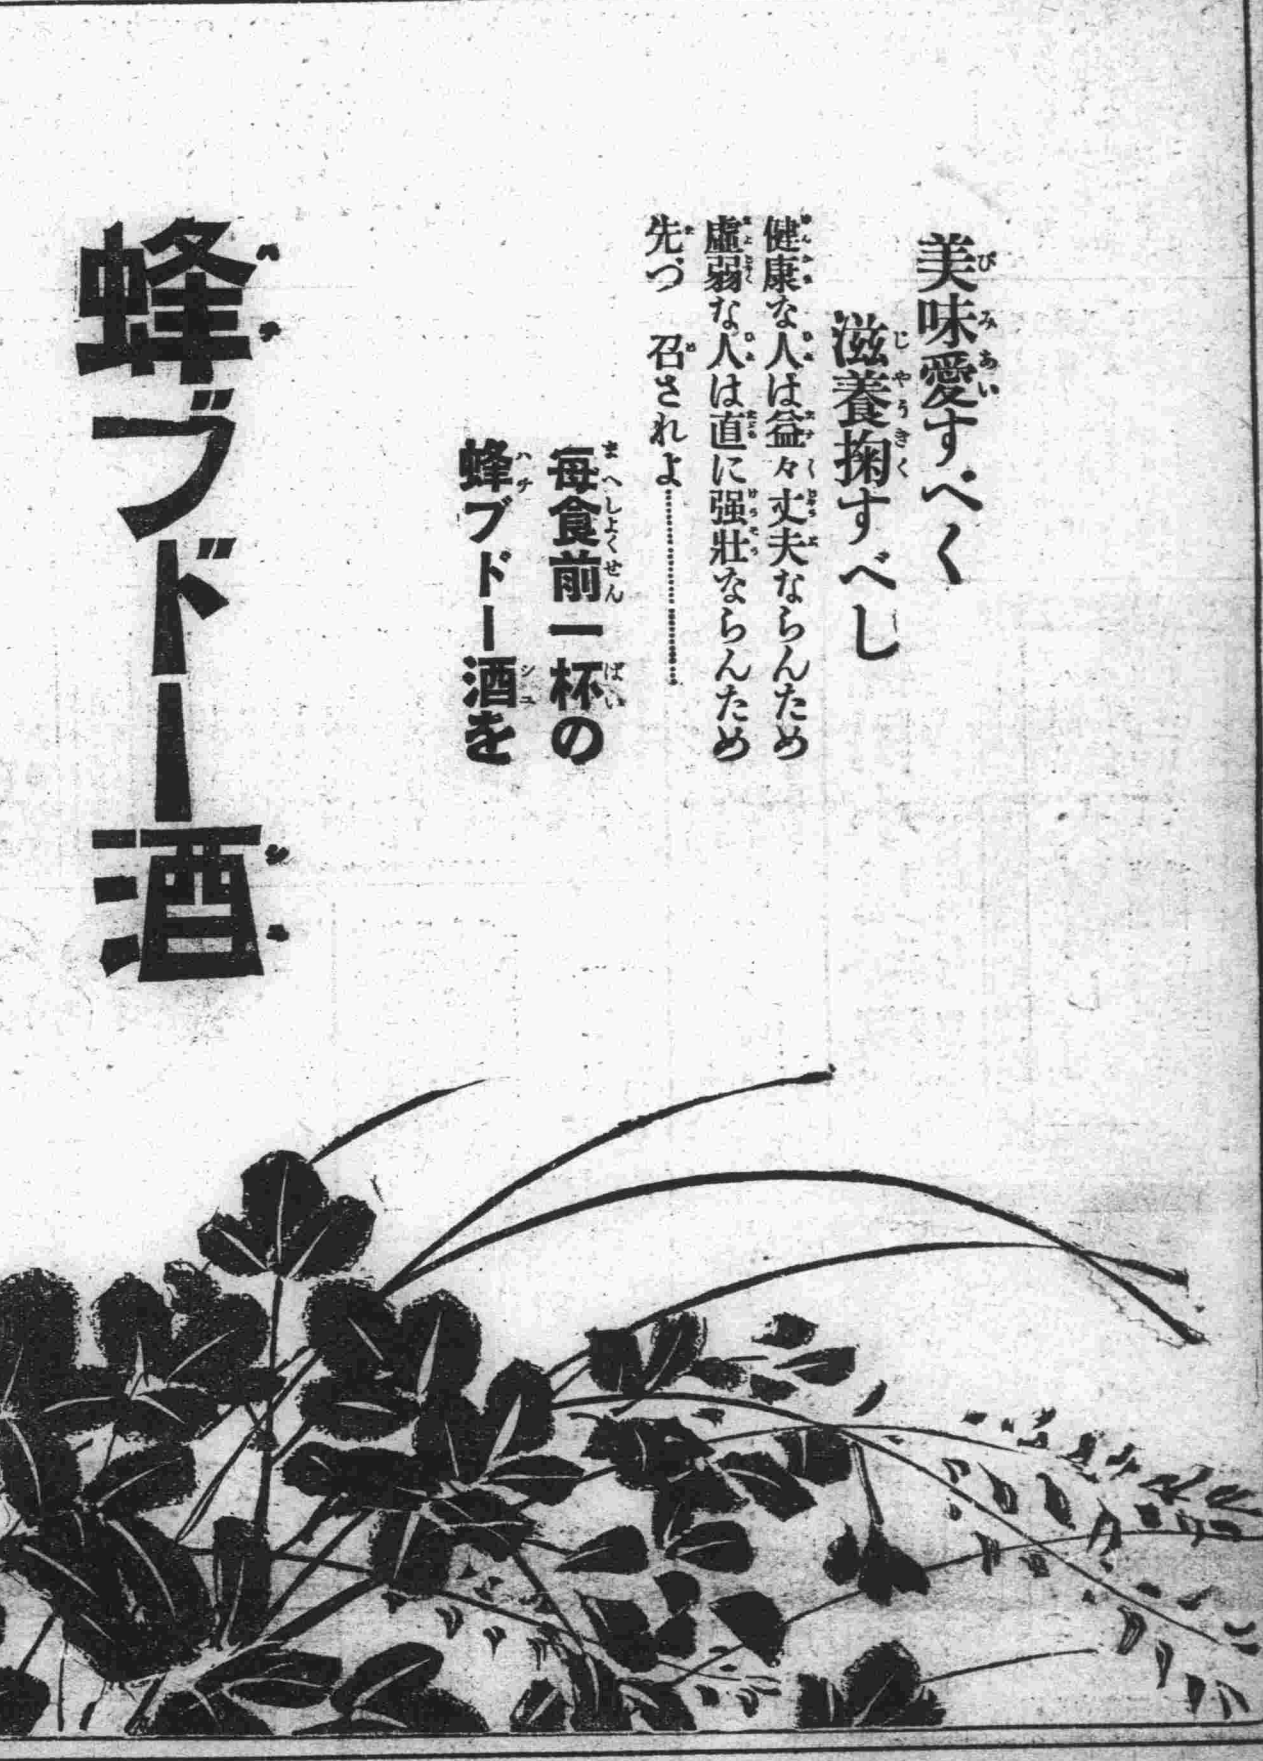 美味愛すべく
滋養掬すべし
健康な人は益々丈夫ならんため
虛弱な人は直に强壯ならんため
先づ 召されよ…………
每食前一杯の
蜂ブドー酒を
蜂ブドー酒